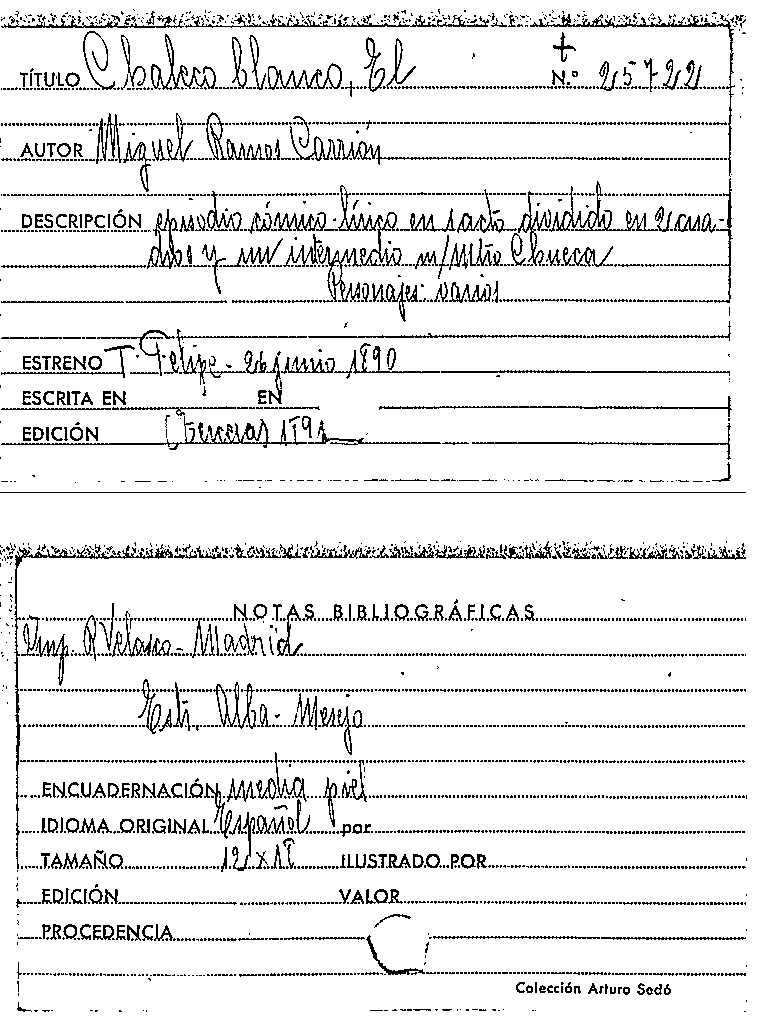 TÍTULO Chaleco blanco, El N.º 25722
AUTOR Miguel Ramos Carrión
DESCRIPCIÓN episodio cómico-lírico en 1 acto dividido en 2 cua-
dros y un intermedio m/ Mtro Chueca
Personajes: varios
ESTRENO T. Felipe - 26 junio 1890
ESCRITA EN EN
EDICIÓN 189
NOTAS BIBLIOGRÁFICAS
Imp. R Velasco - Madrid
Estr. Alba - Mesejo
ENCUADERNACIÓN media piel
IDIOMA ORIGINAL Español por
TAMAÑO 12 x 18 ILUSTRADO POR
EDICIÓN VALOR
PROCEDENCIA
Colección Arturo Sedó